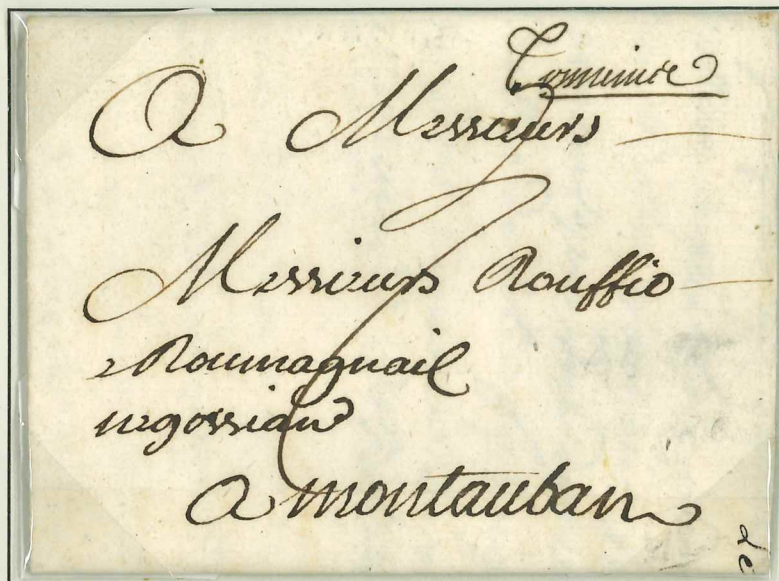 Comminie
A Messieurs
Messieurs Rouffio
e Roumagnail
negossian
a montauban
de